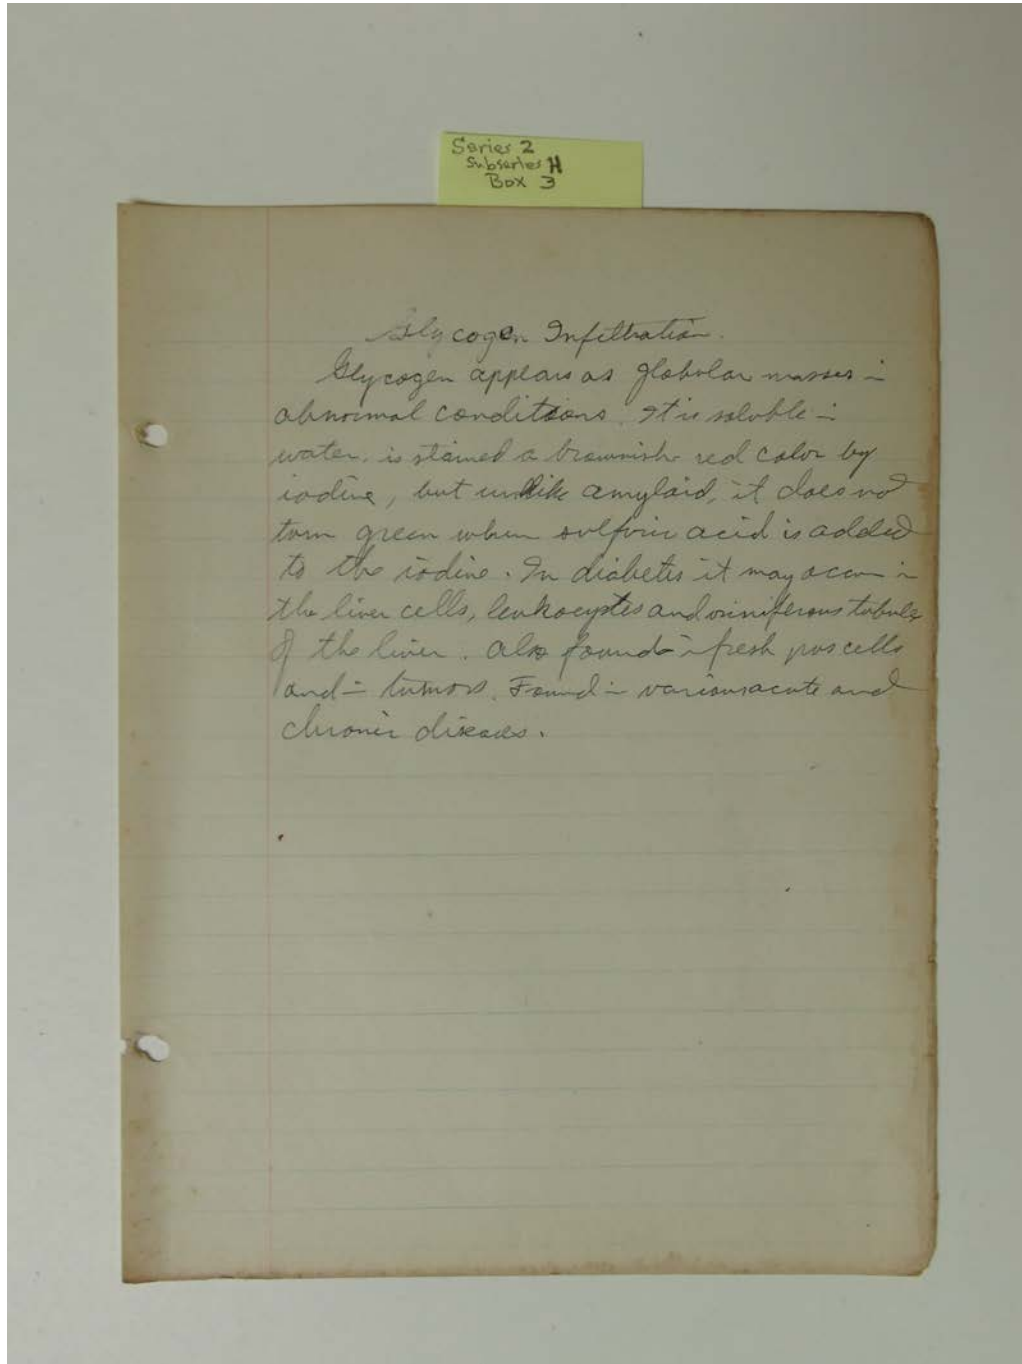 Series 2
Subseries H
Box 3
Glycogen Infiltration.
Glycogen appears as globular masses in
abnormal conditions. It is soluble in
water. is stained a brownish red color by
iodine, but unlike amylaid, it does not
turn green when sulfuric acid is added
to the iodine. In diabetis it may occur in
the liver cells, leukocytes and uriniferous tubules
of the liver. Also found in fresh pus cells
and in tumors. Found in various acute and
chronic diseases.